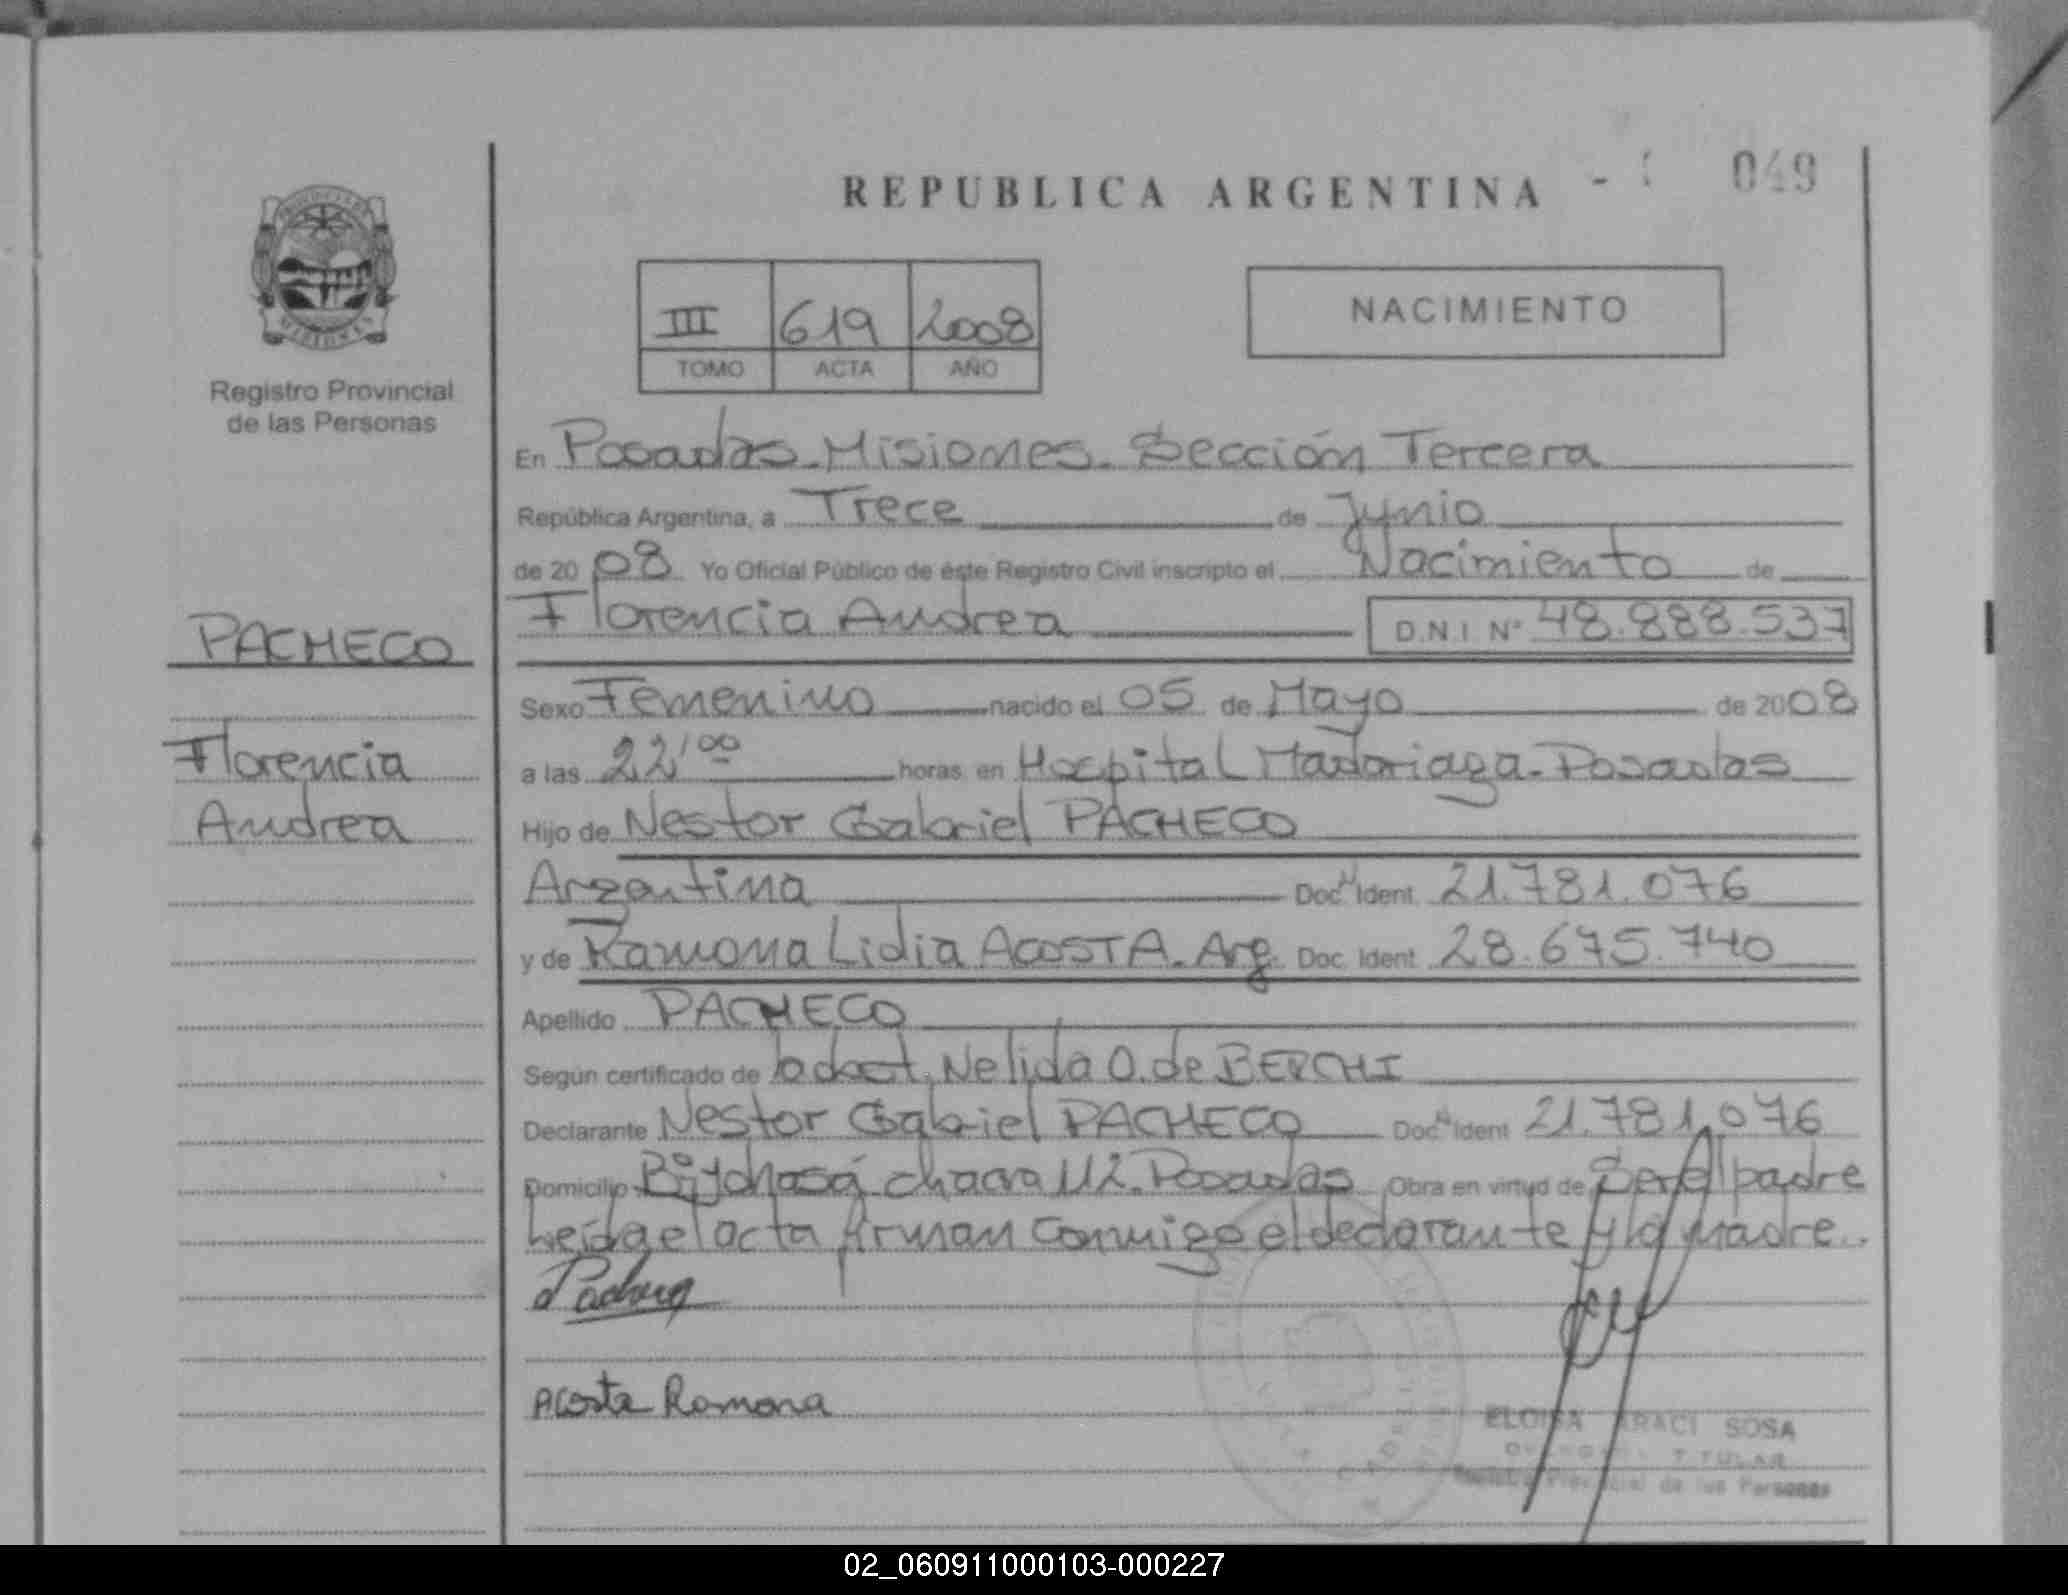 REPUBLICA ARGENTINA - 049
III 619 2008
TOMO ACTA AÑO
NACIMIENTO
MISIONES
Registro Provincial
de las Personas
En Posadas-Misiones. Sección Tercera
República Argentina, a Trece de Junio
de 20 08 Yo Oficial Público de éste Registro Civil inscripto el Nacimiento de
PACHECO
Florencia Andrea D.N.I Nº 48.888.537
Sexo Femenino nacido el 05 de Mayo de 2008
Florencia
a las 22'00 horas en Hospital Madariaga-Posadas
Andrea
Hijo de Nestor Gabriel PACHECO
Argentina Doc. Ident. 21.781.076
y de Ramona Lidia ACOSTA. Arg. Doc. Ident. 28.675.740
Apellido PACHECO
Según certificado de obst. Nelida O. de BERCHI
Declarante Nestor Gabriel PACHECO Doc. Ident 21.781.076
Domicilio chacra 112. Posadas Obra en virtud de Ser el padre
Leída el acta firman conmigo el declarante y la madre.
Acosta Ramona
ELOISA ARACI SOSA
TITULAR
Registro Provincial de las Personas
02_060911000103-000227